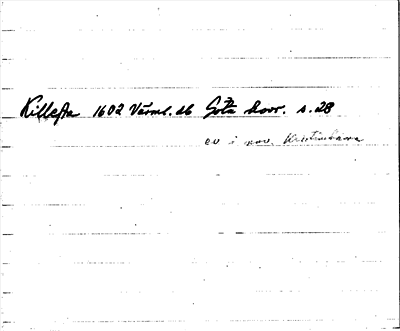 Killefta 1602 Värml. db Göta Kovr. s. 28
ev i nuv. Kristinehamn